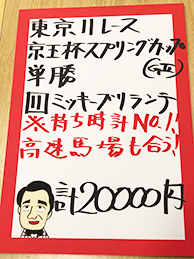 東京11レース
京王杯スプリングカップ
(GⅡ)
単勝
⑪ミッキーブリランテ
※持ち時計NO.1!!
高速馬場も合う!
計20000円